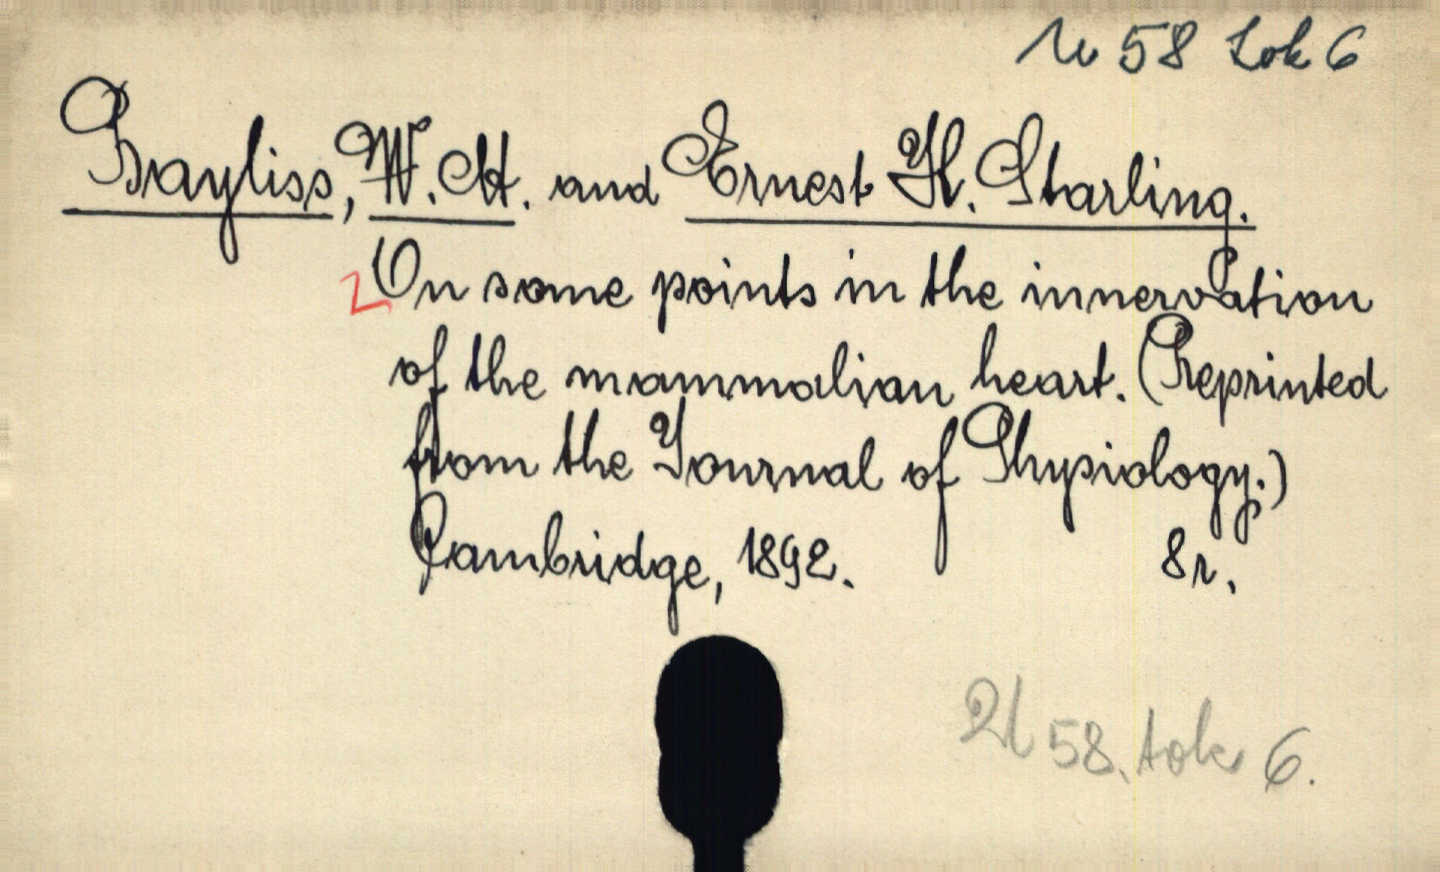 U 58 Tok 6
Bayliss, W. M. and Ernest H. Starling.
2 On some points in the innervation
of the mammalian heart. (Reprinted
from the Journal of Physiology.)
Cambridge, 1892. 8r.
U 58. tok 6.